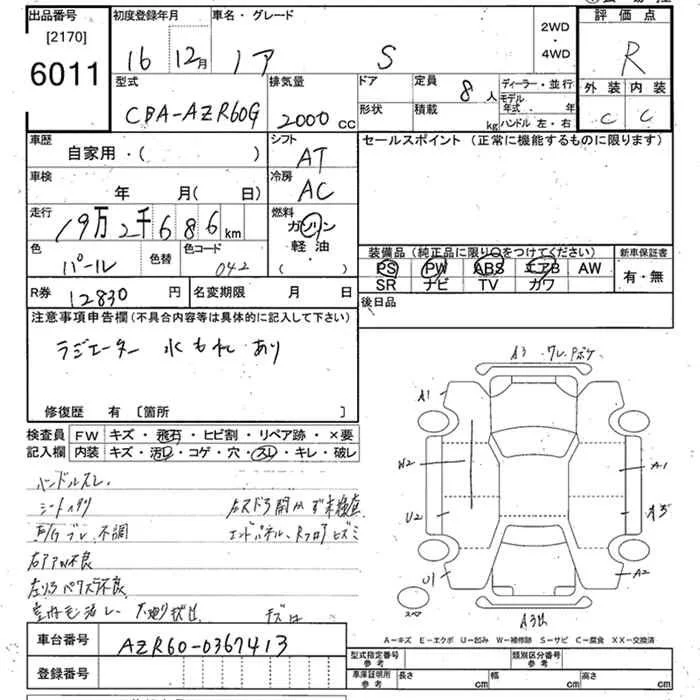 出品番号 初度登録年月 車名・グレード 2WD・4WD 評価点
[2170]
6011 16 12月 ノア S R
外装 内装
C C
型式 排気量 ドア 定員 8人 ディーラー・並行
形状 積載 kg モデル年式 ・ 年
CBA-AZR60G 2000cc ハンドル 左・右
車歴 シフト セールスポイント (正常に機能するものに限ります)
自家用・( ) AT
車検 冷房
年 月( 日) AC
走行 燃料
19万2千686km ガソリン
軽油
( ・ )
色 色替 色コード
パール 042
装備品 (純正品に限り○をつけてください) 新車保証書
PS PW ABS エアB AW 有・無
SR ナビ TV カワ
R券 12830円 名変期限 月 日
後日品
注意事項申告欄 (不具合内容等は具体的に記入して下さい)
ラジエーター 水もれ あり
修復歴 有 [箇所 ]
検査員 FW キズ・飛石・ヒビ割・リペア跡・×要
記入欄 内装 キズ・汚レ・コゲ・穴・スレ・キレ・破レ
ハンドルスレ
シートヘタリ
E/Gブレ 不調
右スドラ開かず未検査
エンドパネル、Rフロアヒズミ
A3 ワレ
A1
W2
U2
U1
A1
A3
A2
スペア
A-キズ E-エクボ U-凹み W-補修跡 S-サビ C-腐食 XX-交換済
車台番号 AZR60-0367413
型式指定番号 参考 類別区分番号 参考
登録番号
車庫証明所 参考 長さ cm 幅 cm 高さ cm